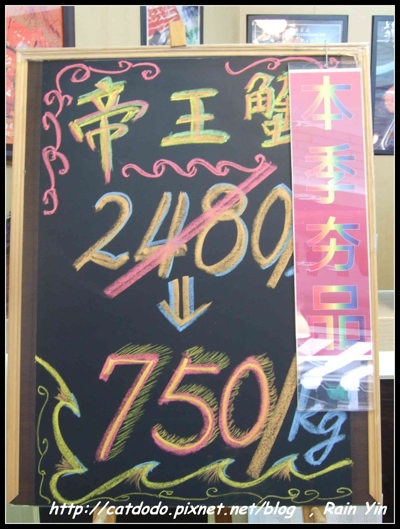 帝王蟹
2480/
750/kg
本季夯品
http://catdodo.pixnet.net/blog , Rain Yin